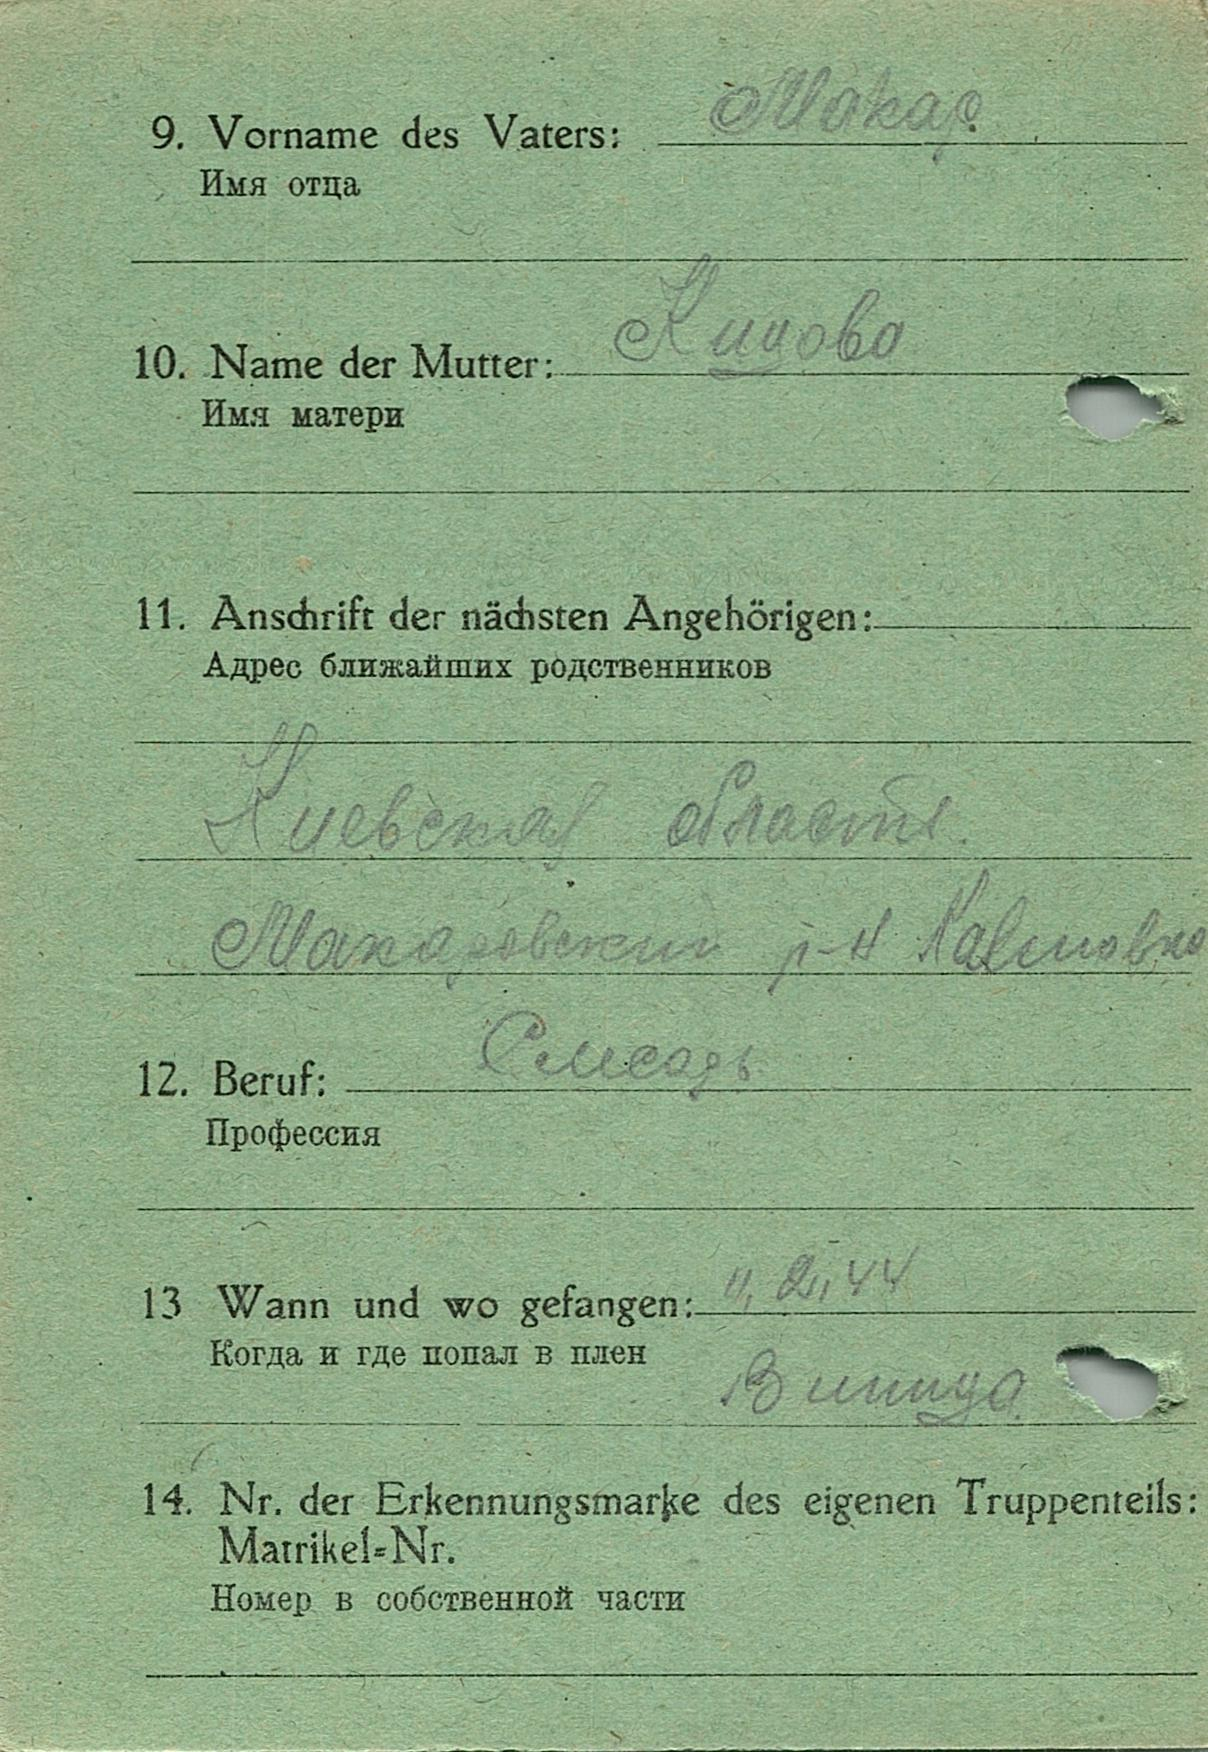 9. Vorname des Vaters: Макар
Имя отца
10. Name der Mutter:
Имя матери
11. Anschrift der nächsten Angehörigen:
Адрес ближайших родственников
Киевская область.
Макаровский р-н
12. Beruf: Слесарь
Профессия
13 Wann und wo gefangen: 44
Когда и где попал в плен
Виница
14. Nr. der Erkennungsmarke des eigenen Truppenteils:
Matrikel=Nr.
Номер в собственной части